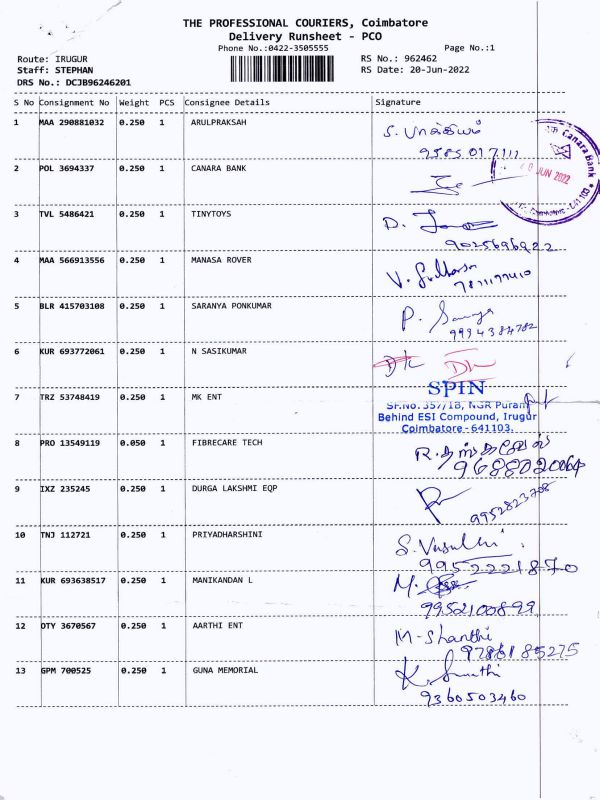 THE PROFESSIONAL COURIERS, Coimbatore
Delivery Runsheet - PCO
Phone No.:0422-3505555 Page No.:1
Route: IRUGUR RS No.: 962462
Staff: STEPHAN RS Date: 20-Jun-2022
DRS No.: DCJB96246201
S No Consignment No Weight PCS Consignee Details Signature
1 MAA 290881032 0.250 1 ARULPRAKSAH
S.
9585 017 111
2 POL 3694337 0.250 1 CANARA BANK
Canara Bank
JUN 2022
3 TVL 5486421 0.250 1 TINYTOYS
D.
9025696922
4 MAA 566913556 0.250 1 MANASA ROVER
V.
5 BLR 415703108 0.250 1 SARANYA PONKUMAR
P.
9994384782
6 KUR 693772061 0.250 1 N SASIKUMAR
7 TRZ 53748419 0.250 1 MK ENT
SPIN
SF.No. 357/1B, NGR Puram
Behind ESI Compound, Irugur
Coimbatore - 641103.
8 PRO 13549119 0.050 1 FIBRECARE TECH
R.
9688020064
9 IXZ 235245 0.250 1 DURGA LAKSHMI EQP
9952823708
10 TNJ 112721 0.250 1 PRIYADHARSHINI
S.
9952221870
11 KUR 693638517 0.250 1 MANIKANDAN L
M.
9952100899
12 OTY 3670567 0.250 1 AARTHI ENT
M-Shanthi
9786185275
13 GPM 700525 0.250 1 GUNA MEMORIAL
K.
9360503460